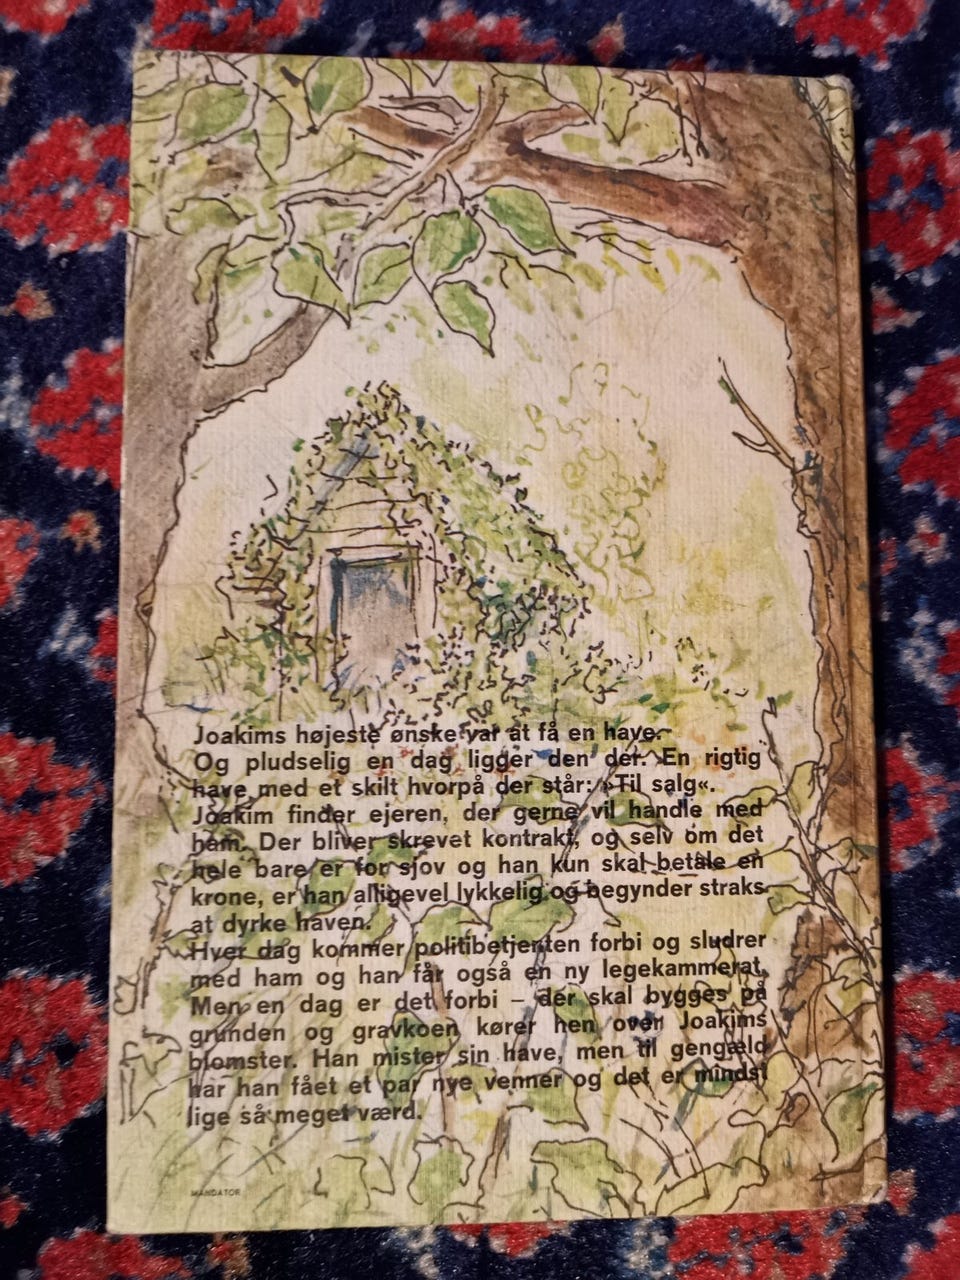 Joakims højeste ønske var at få en have.
Og pludselig en dag ligger den der. En rigtig
have med et skilt hvorpå der står: »Til salg«.
Joakim finder ejeren, der gerne vil handle med
ham. Der bliver skrevet kontrakt, og selv om det
hele bare er for sjov og han kun skal betale en
krone, er han alligevel lykkelig og begynder straks
at dyrke haven.
Hver dag kommer politibetjenten forbi og sludrer
med ham og han får også en ny legekammerat.
Men en dag er det forbi – der skal bygges på
grunden og gravkoen kører hen over Joakims
blomster. Han mister sin have, men til gengæld
har han fået et par nye venner og det er mindst
lige så meget værd.
MANDATOR